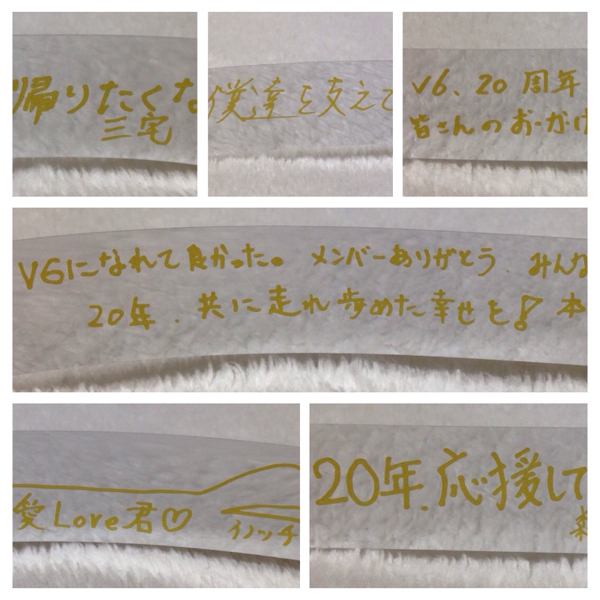 帰りたくな
三宅
僕達を支えて
V6、20周年
皆さんのおかげ
V6になれて良かった。メンバーありがとう、みんな
20年、共に走れ歩めた幸せを! 本
愛Love君♡
イノッチ
20年、応援して
森